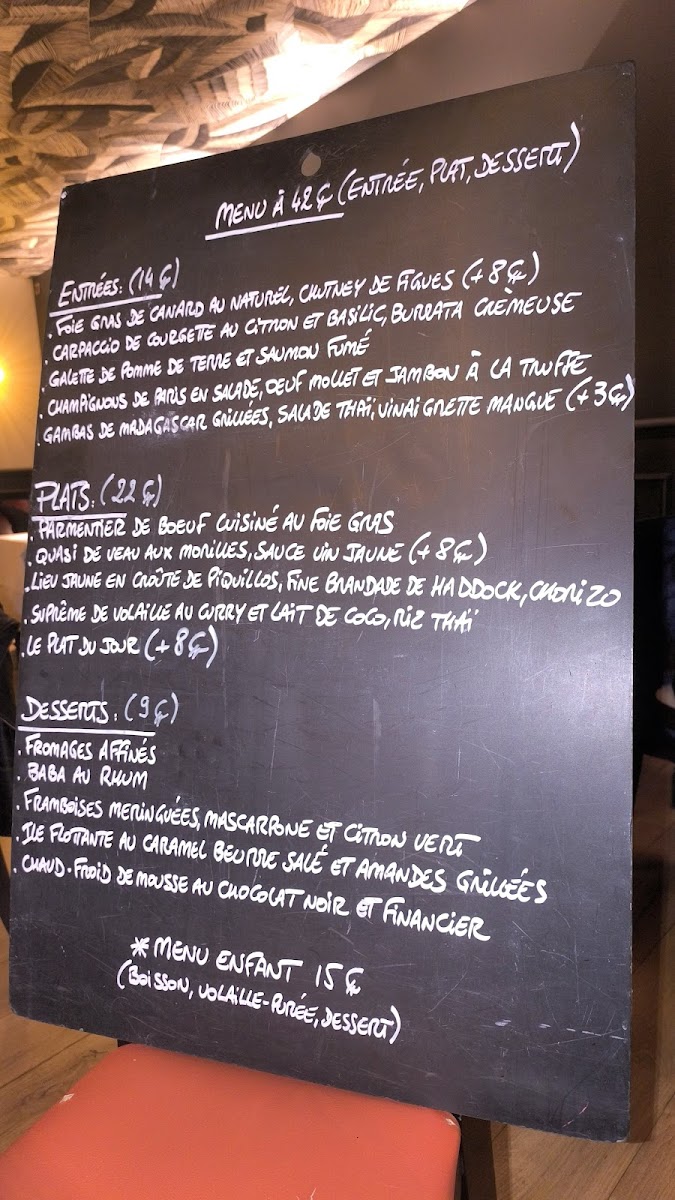 MENU À 42€ (ENTRÉE, PLAT, DESSERT)
ENTRÉES: (14€)
. FOIE GRAS DE CANARD AU NATUREL, CHUTNEY DE FIGUES (+8€)
. CARPACCIO DE COURGETTE AU CITRON ET BASILIC, BURRATA CRÈMEUSE
. GALETTE DE POMME DE TERRE ET SAUMON FUMÉ
. CHAMPIGNONS DE PARIS EN SALADE, OEUF MOLLET ET JAMBON À LA TRUFFE
GAMBAS DE MADAGASCAR GRILLÉES, SALADE THAÏ, VINAIGRETTE MANGUE (+3€)
PLATS: (22€)
. PARMENTIER DE BOEUF CUISINÉ AU FOIE GRAS
. QUASI DE VEAU AUX MORILLES, SAUCE VIN JAUNE (+8€)
. LIEU JAUNE EN CROÛTE DE PIQUILLOS, FINE BRANDADE DE HADDOCK, CHORIZO
. SUPRÊME DE VOLAILLE AU CURRY ET LAIT DE COCO, RIZ THAÏ
. LE PLAT DU JOUR (+8€)
DESSERTS: (9€)
. FROMAGES AFFINÉS
. BABA AU RHUM
. FRAMBOISES MERINGUÉES, MASCARPONE ET CITRON VERT
. ILE FLOTTANTE AU CARAMEL BEURRE SALÉ ET AMANDES GRILLÉES
. CHAUD-FROID DE MOUSSE AU CHOCOLAT NOIR ET FINANCIER
* MENU ENFANT 15€
(BOISSON, VOLAILLE-PURÉE, DESSERT)